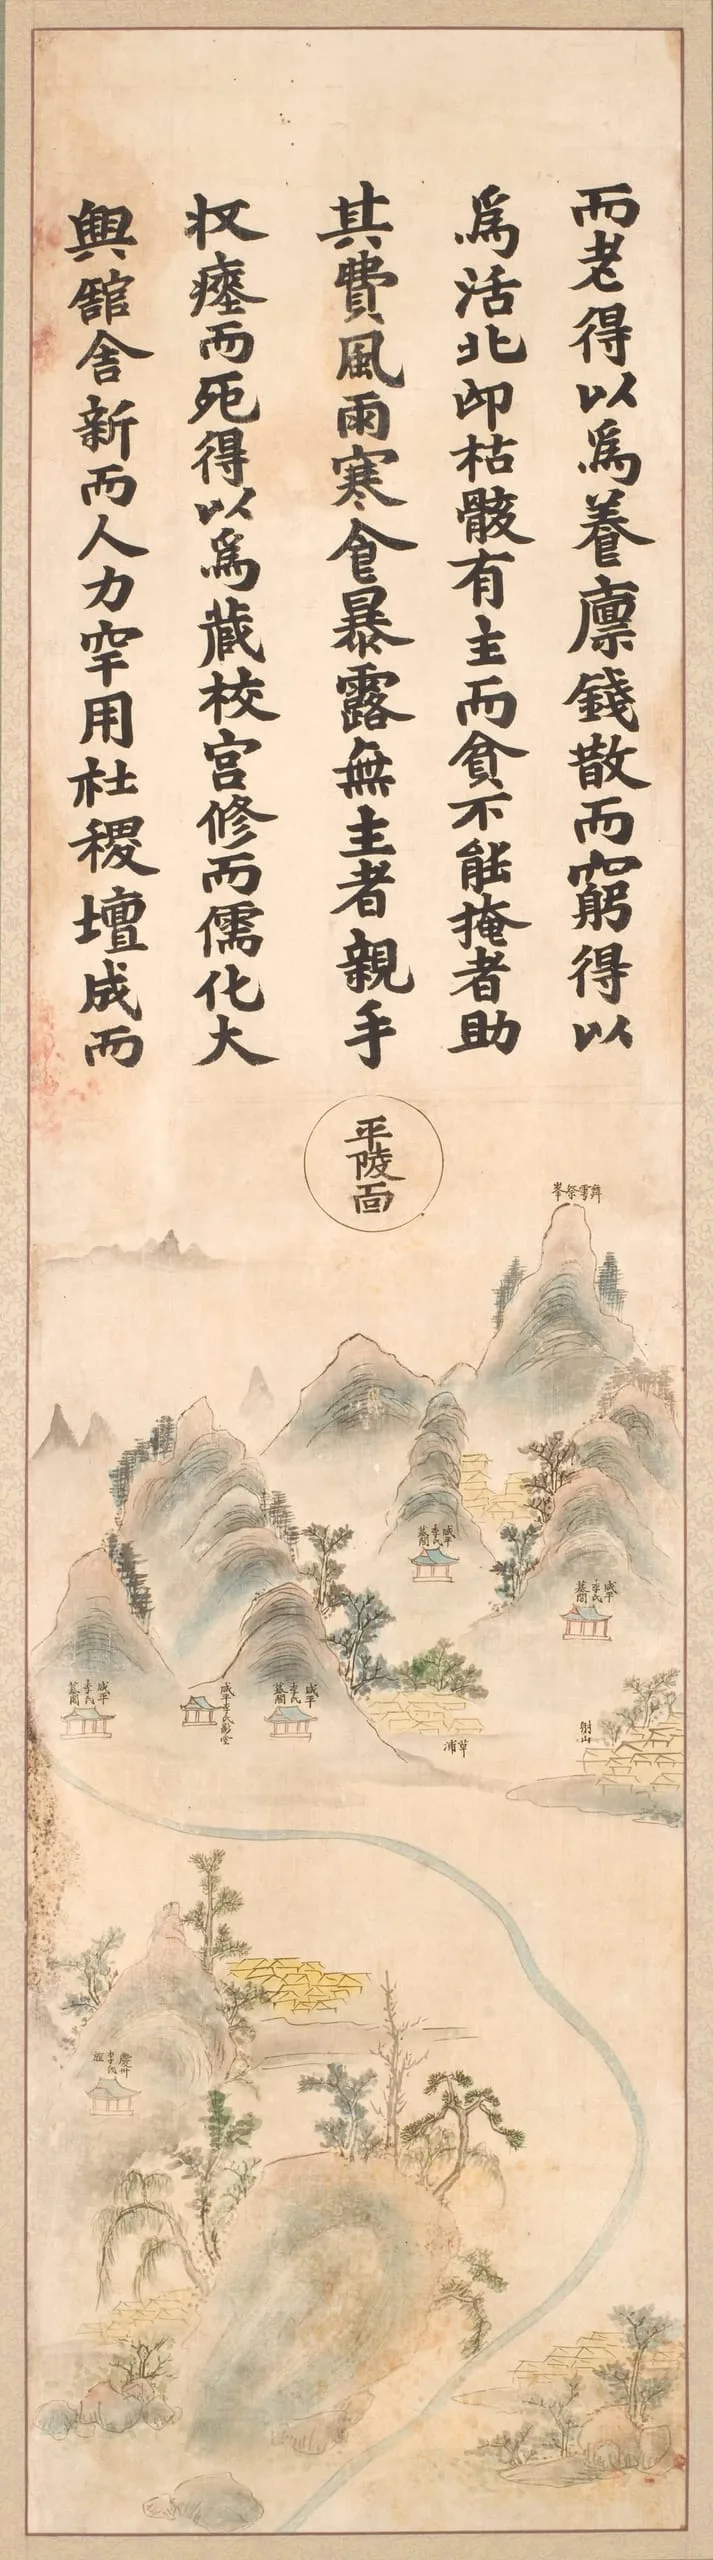 而老得以爲養廩錢散而窮得以
爲活北邙枯骸有主而貧不能掩者助
其費風雨寒食暴露無主者親手
収瘞而死得以爲藏校宮修而儒化大
興舘舍新而人力罕用社稷壇成而
平陵面
舞雩祭峯
咸平李氏墓閣
咸平李氏墓閣
咸平李氏墓閣
咸平李氏影堂
咸平李氏墓閣
草浦
射山
慶州李氏